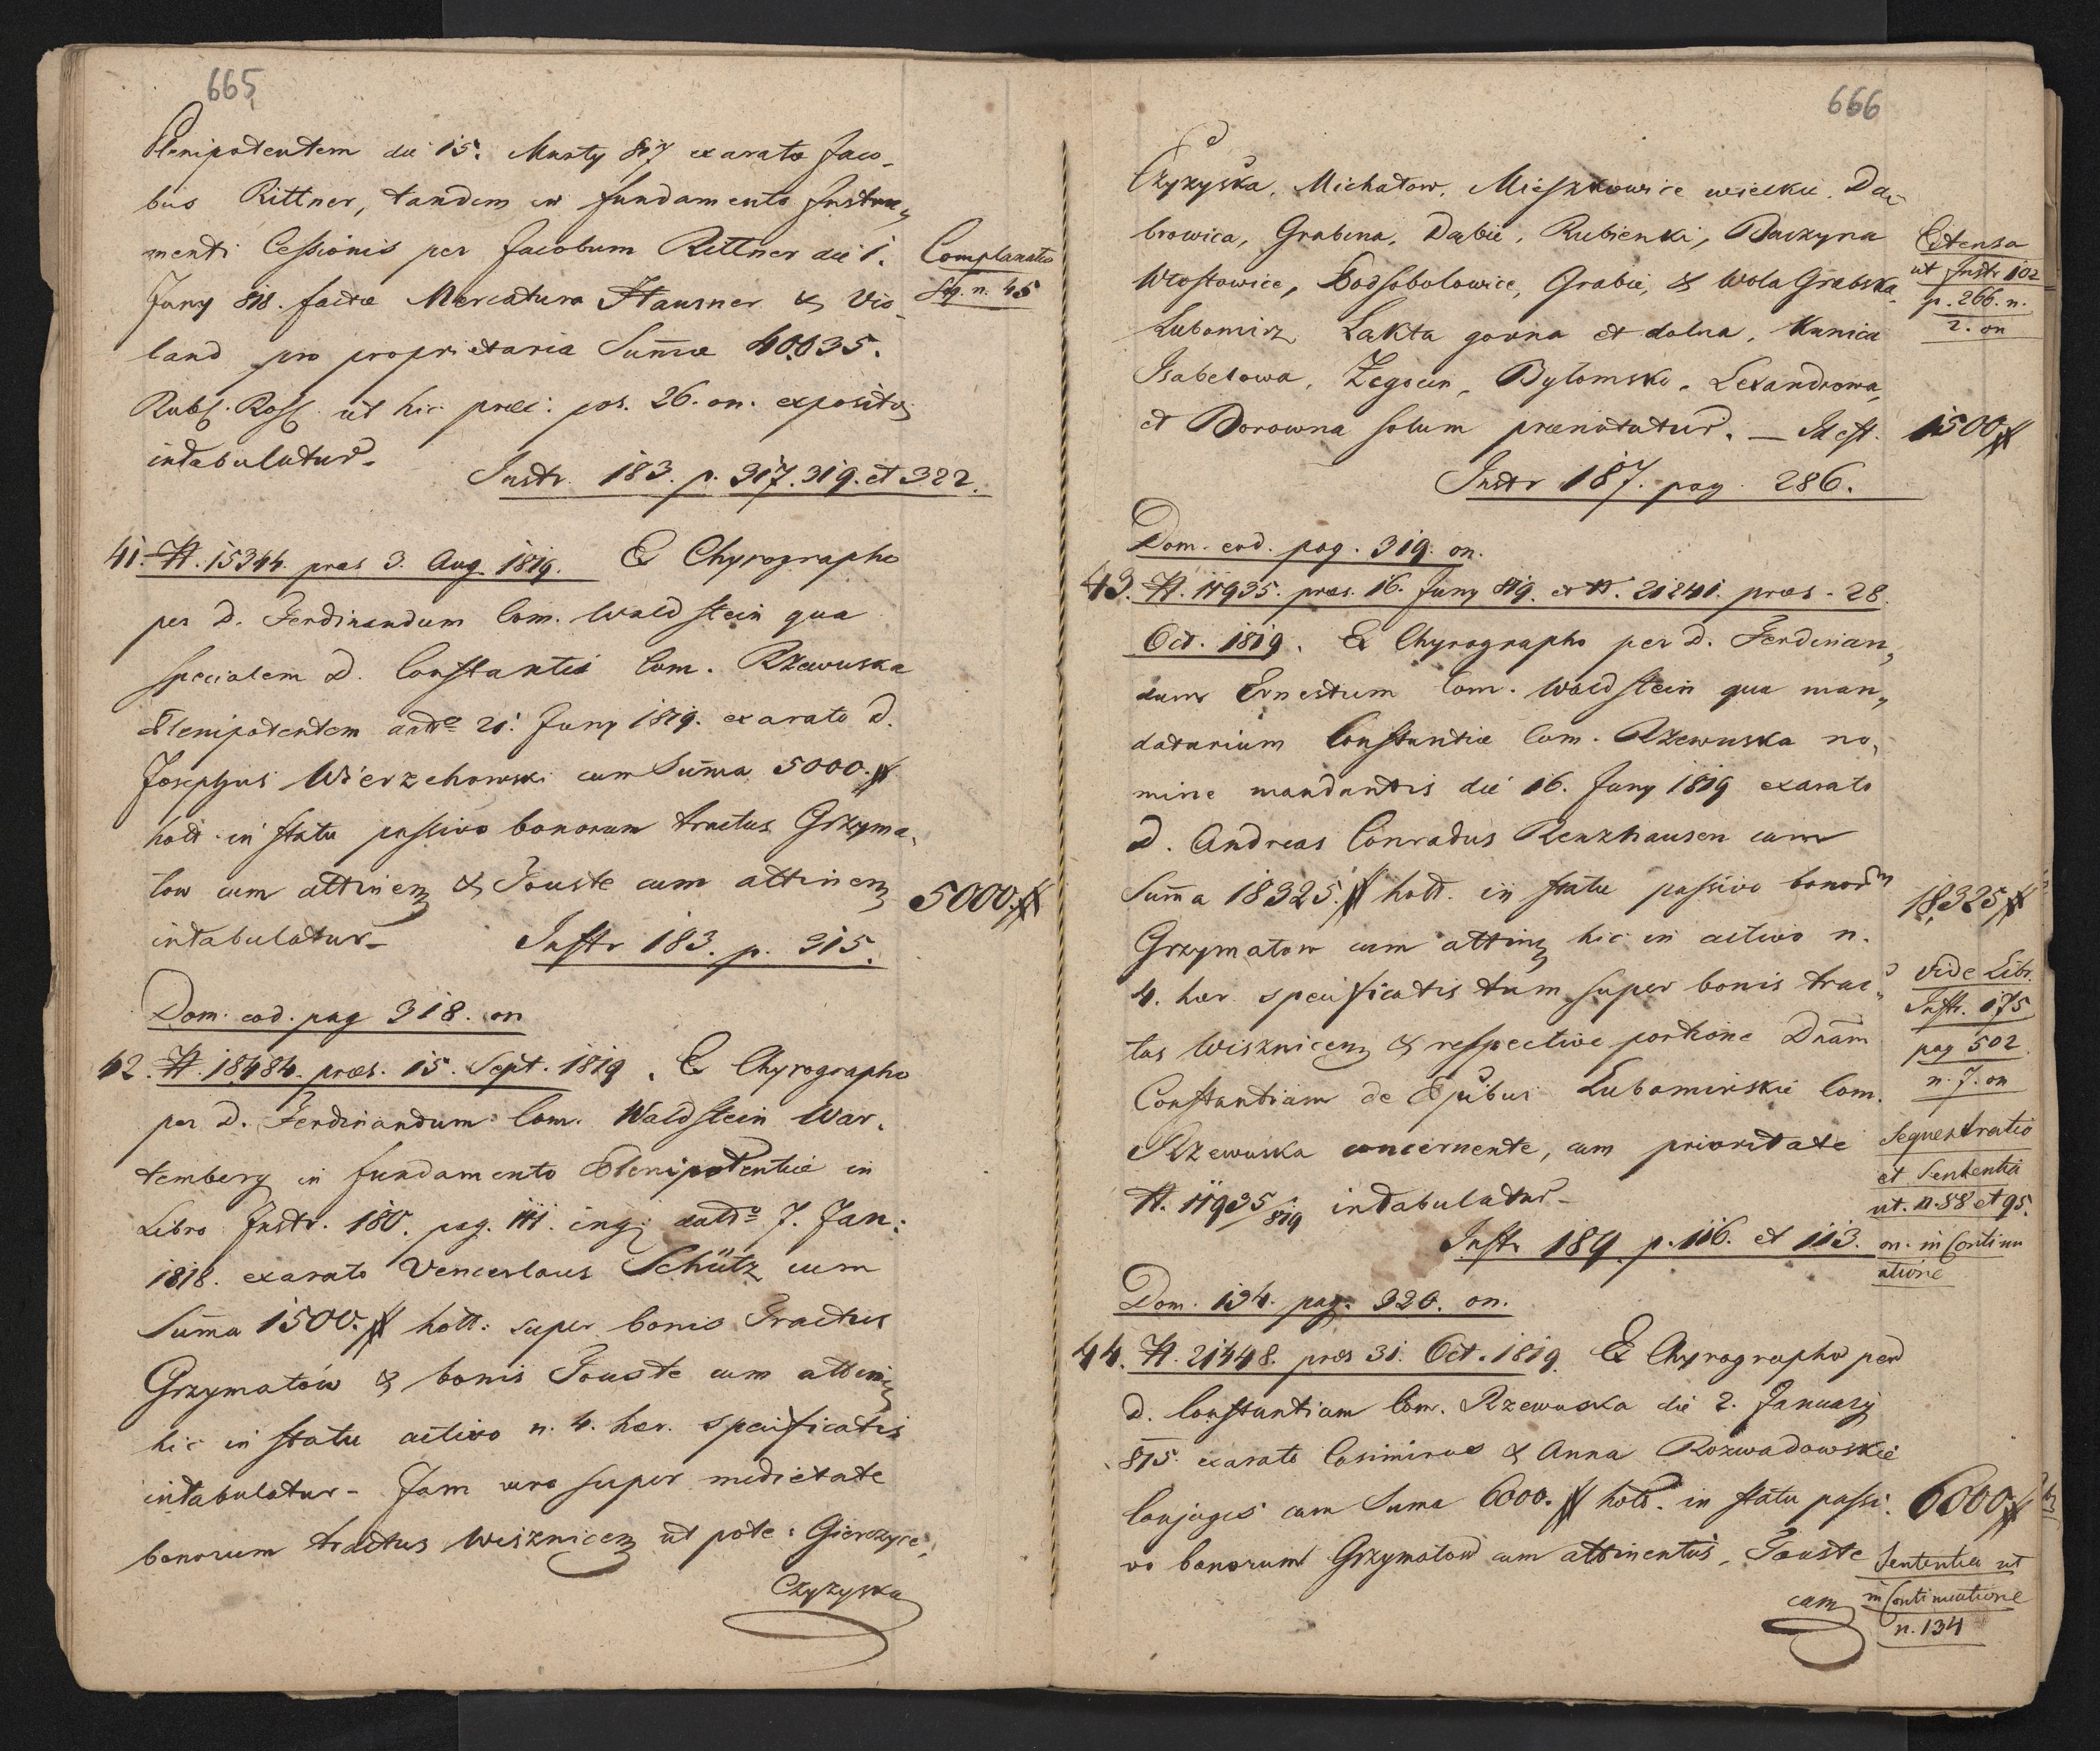 665
Plenipotentem die 15. Marty 817 exarato Jaco-
bus Rittner, tandem in fundamento Instru„
menti Cessionis per Jacobum Rittner die 1.
Juny 818. factae Mercatura Hausner & Vio-
land pro proprietaria Summae 40.635.
Rubl. Ross. ut hic praec: pos. 26. on. expositae
intabulatur.
Instr. 183. p. 317. 319. et 322.
Complanatio
Sq. n. 45
41. N. 15344. praes 3. Aug. 1819. Ex Chyrographo
per D. Ferdinandum Com. Waldstein qua
specialem D. Constantia Com. Rzewuska
Plenipotentem ddtto 21. Juny 1819. exarato D.
Josephus Wierzchowski cum Summa 5000. #
holl. in statu passivo bonorum tractus Grzyma-
low cum attinen & Touste cum attinen
intabulatur.
5000. #
Instr 183. p. 315.
Dom. eod. pag 318. on
42. N. 18484. praes. 15. Sept. 1819. Ex Chyrographo
per D. Ferdinandum Com. Waldstein War-
temberg in fundamento Plenipotentiae in
Libro Instr. 180. pag. 111. ing. ddtto 7. Jan:
1818. exarato Venceslaus Schütz cum
Summa 1500. # holl: super bonis Tractus
Grzymatów & bonis Touste cum attinen
hic in statu activo n. 4. haer. specificatis
intabulatur - Jam vero super medietate
bonorum tractus Wisznicen ut pote: Gierczyce,
Czyzyska
666
Czyzyska, Michatow, Mieszkowice wielkie, Da-
browica, Grabina, Dąbie, Rubienki, Buczyna
Wrostowice, Podsobolowice, Grabie, & Wola Grabska,
Lubomirz Łakta gorna et dolna, Kunica
Isabelowa, Żegocin, Bytomsko, Lexandrowa,
et Borowna solum praenotatur. — Id est.
1500 #
Extensa
ut Instr 102
p. 266. n.
2. on
Instr 187. pag. 286.
Dom. eod. pag. 319. on.
43. N. 11935. praes. 16. Juny 819. et N. 21241. praes - 28.
Oct. 1819. Ex Chyrographo per D. Ferdinan„
dum Ernestum Com. Waldstein qua man„
datarium Constantiae Com. Rzewuska no„
mine mandantis die 16. Juny 1819 exarato
D. Andreas Conradus Renzhausen cum
Summa 18325. # holl. in statu passivo bonorum
Grzymatow cum attinen hic in activo n.
4. haer. specificatis tum super bonis trac„
tus Wisznicen & respective portione Dnam
Constantiam de Ppibus Lubomirskie Com.
Rzewuska concernente, cum prioritate
N. 11935/819 intabulatur -
18,325 #
Vide Libr.
Instr. 175
pag 502
n. 7. on
Sequestratio
et Sententia
ut. n. 88 et 95.
on. in Continu
atione
Instr 189 p. 116. et 113.
Dom. 134. pag. 320. on.
44. N. 21448. praes 31. Oct. 1819. Ex Chyrographo per
D. Constantiam Com. Rzewuska die 2. January
815. exarato Casimirus & Anna Rozwadowskie
Conjuges cum Suma 6000. # holl. in statu passi-
vo bonorum Grzymatow cum attinentiis, Touste
cum
6000 #
Sententia ut
in Continuatione
n. 134